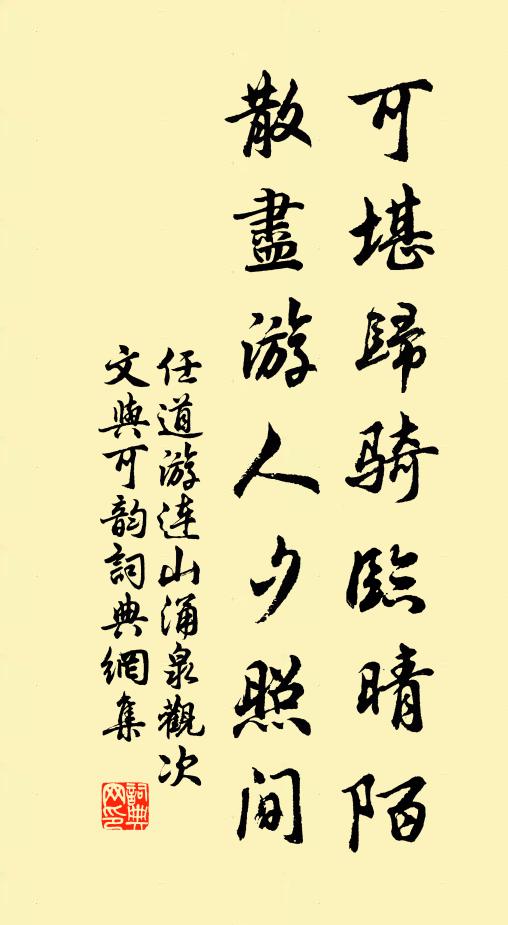 可堪歸骑臨晴陌
散盡游人夕照间
任道游连山涌泉觀次
文與可韵詞典網集
詞典网印